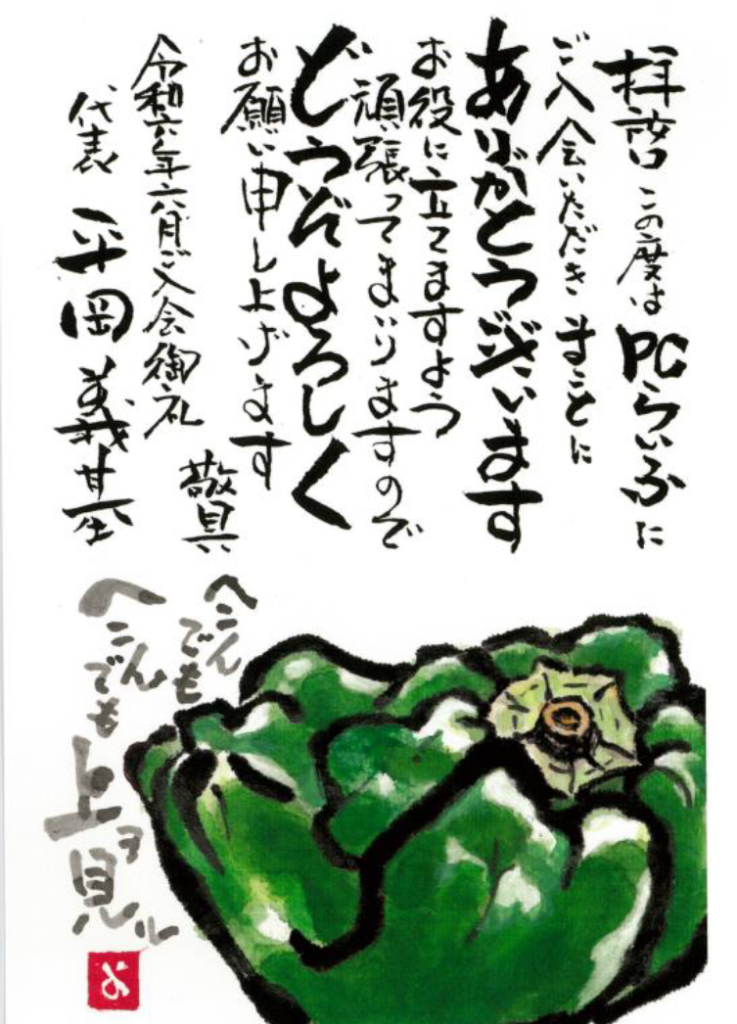 拝啓 この度は PCらいふに
ご入会いただき まことに
ありがとうございます
お役に立てますよう
頑張ってまいりますので
どうぞよろしく
お願い申し上げます
敬具
令和六年六月ご入会御礼
代表 平岡義甚
へこんでも
へこんでも
上ヲ見ル
よ